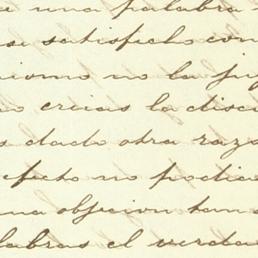 e una palabra
se satisfecho con
no la
creias la discu
dado otra razo
efecto no podia
una objecion tan
labras el verda